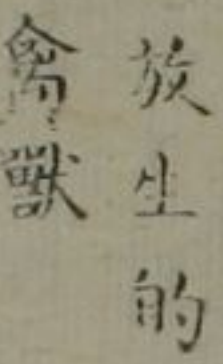 放生的
禽獸